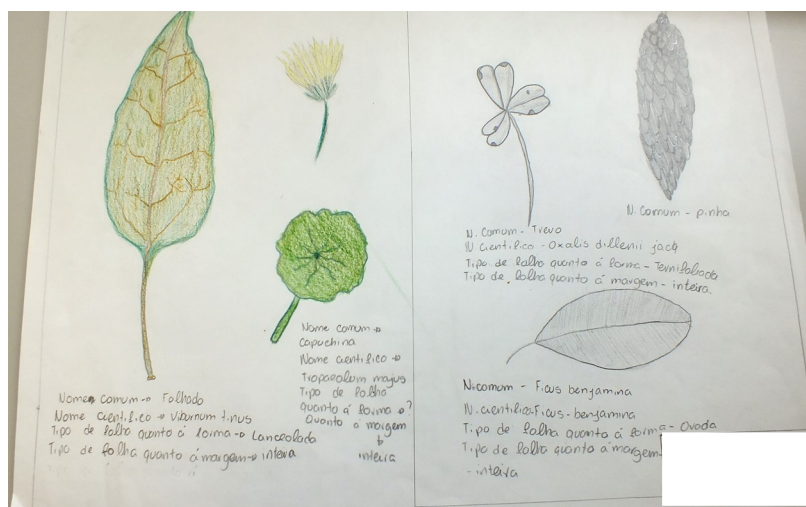 Nome comum → Folhado
Nome cientifico → Viburnum tinus
Tipo de folha quanto á forma → Lanceolada
Tipo de folha quanto á margem → inteira
Nome comum →
Capuchina
Nome cientifico →
Tropaeolum majus
Tipo de folha
quanto á forma → ?
Quanto a margem
↓
inteira
N. Comum - Trevo
N cientifico - Oxalis dillenii jacq
Tipo de folha quanto á forma - Ternifoliada
Tipo de folha quanto á margem - inteira.
N. Comum - pinha
N. comum - Ficus benjamina
N. cientifico Ficus - benjamina
Tipo de folha quanto á forma - Ovada
Tipo de folha quanto á margem
- inteira